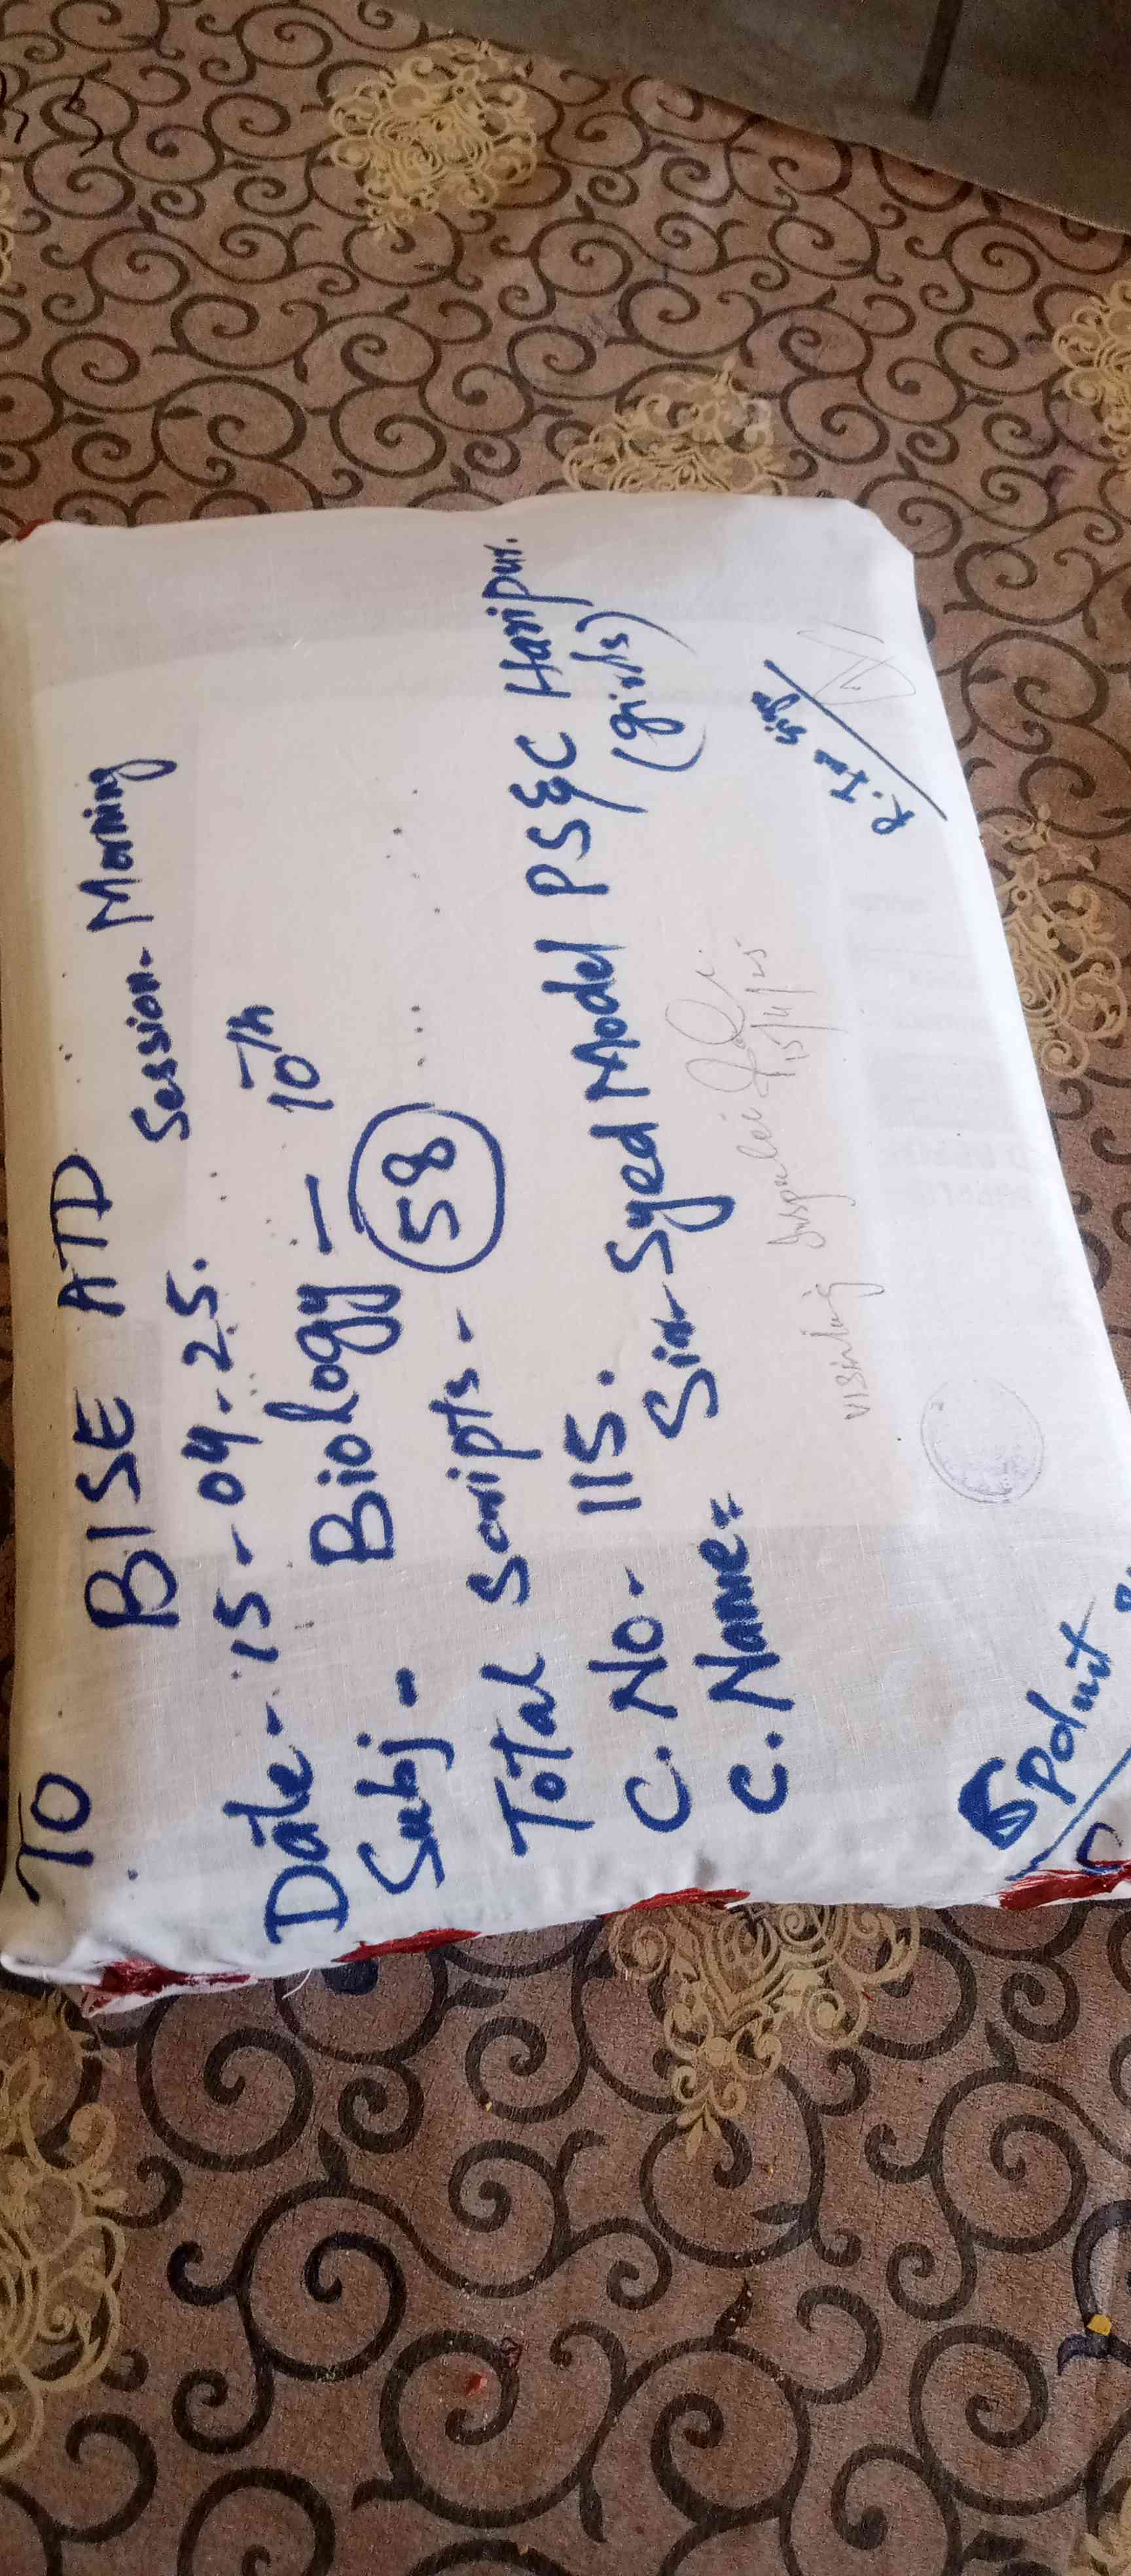 TO
BISE ATD
Date - 15 - 04 - 25. Session - Morning
Subj - Biology — 10th
Total Scripts - 58
C. No - 115.
C. Name: Sir Syed Model PS&C Haripur.
(girls)
Visiting
15/4/25
R. Ins Sign
Spdnt